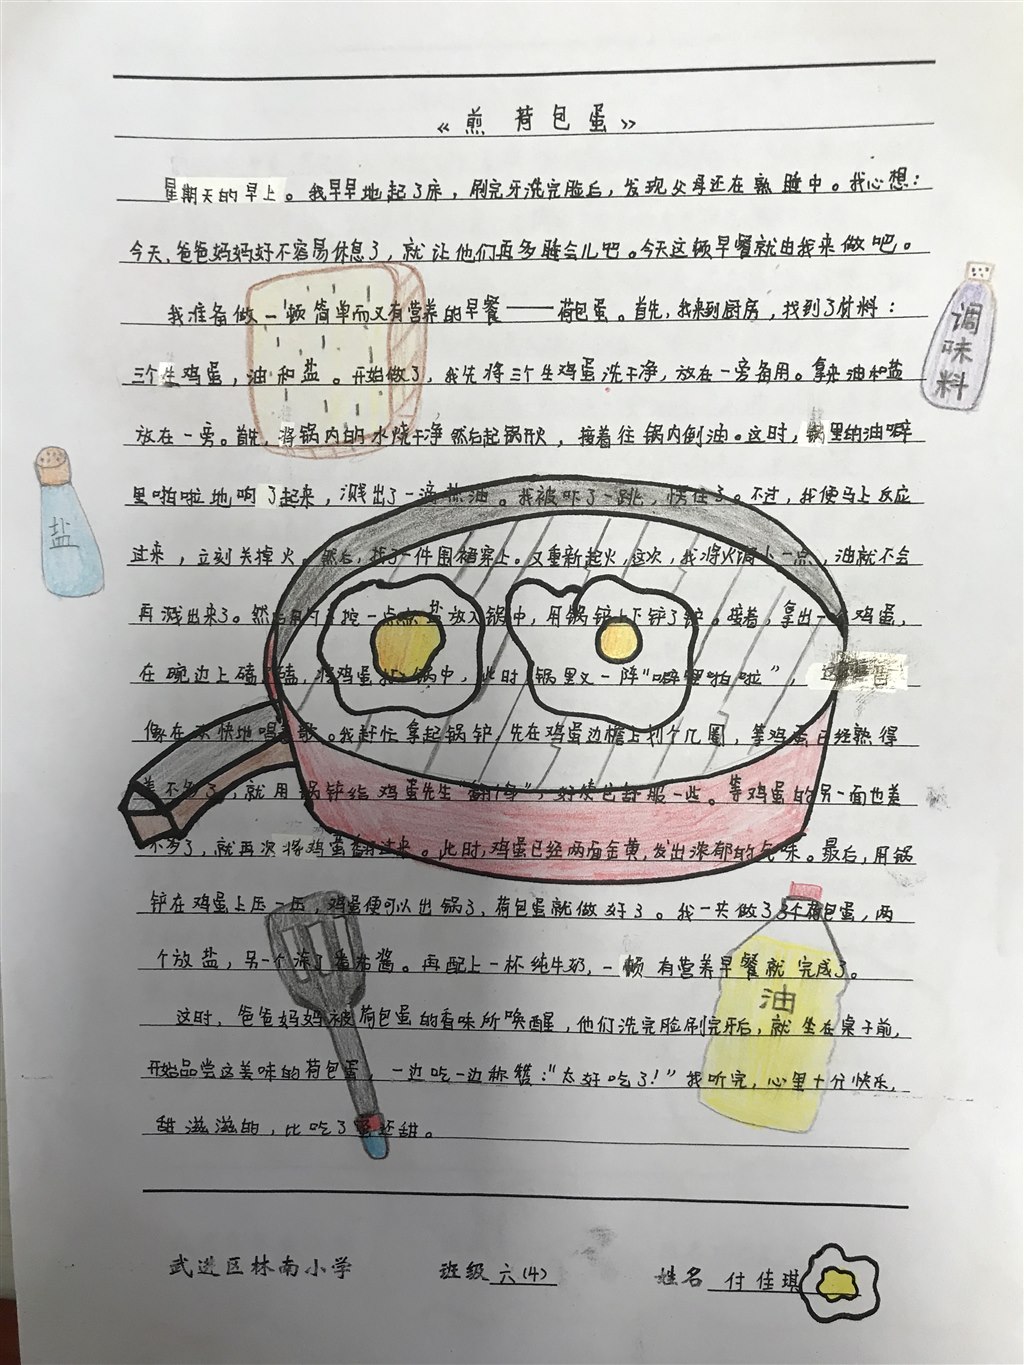 《煎荷包蛋》
星期天的早上。我早早地起了床，刷完牙洗完脸后，发现父母还在熟睡中。我心想：
今天，爸爸妈妈好不容易休息了，就让他们再多睡会儿吧。今天这顿早餐就由我来做吧。
我准备做一顿简单而又有营养的早餐——荷包蛋。首先，我来到厨房，找到了材料：
三个生鸡蛋，油和盐。开始做了，我先将三个生鸡蛋洗干净，放在一旁备用。拿来油和盐
放在一旁。首先，将锅内的水烧干净然后起锅开火，接着往锅内倒油。这时，锅里的油噼
里啪啦地响了起来，溅出了一滴热油。我被吓了一跳，愣住了。不过，我便马上反应
过来，立刻关掉火。然后，找了一件围裙穿上。又重新起火，这次，我将火调小一点，油就不会
再溅出来了。然后用勺子挖一点点盐放入锅中，用锅铲上下铲了铲。接着，拿出一个鸡蛋，
在碗边上磕了磕，将鸡蛋打入锅中，此时锅里又一阵“噼里啪啦”，
像在欢快地唱着歌。我赶忙拿起锅铲，先在鸡蛋边檐上划个几圈，等鸡蛋已经熟得
差不多了，就用锅铲给鸡蛋先生“翻个身”，好使它舒服一些。等鸡蛋的另一面也差
不多了，就再次将鸡蛋翻过来。此时，鸡蛋已经两面金黄，发出浓郁的气味。最后，用锅
铲在鸡蛋上压一压，鸡蛋便可以出锅了，荷包蛋就做好了。我一共做了3个荷包蛋，两
个放盐，另一个涂了番茄酱。再配上一杯纯牛奶，一顿有营养早餐就完成了。
这时，爸爸妈妈被荷包蛋的香味所唤醒，他们洗完脸刷完牙后，就坐在桌子前，
开始品尝这美味的荷包蛋，一边吃一边称赞：“太好吃了！”我听完，心里十分快乐，
甜滋滋的，比吃了蜜还甜。
调味料
盐
油
武进区林南小学 班级六(4) 姓名付佳琪